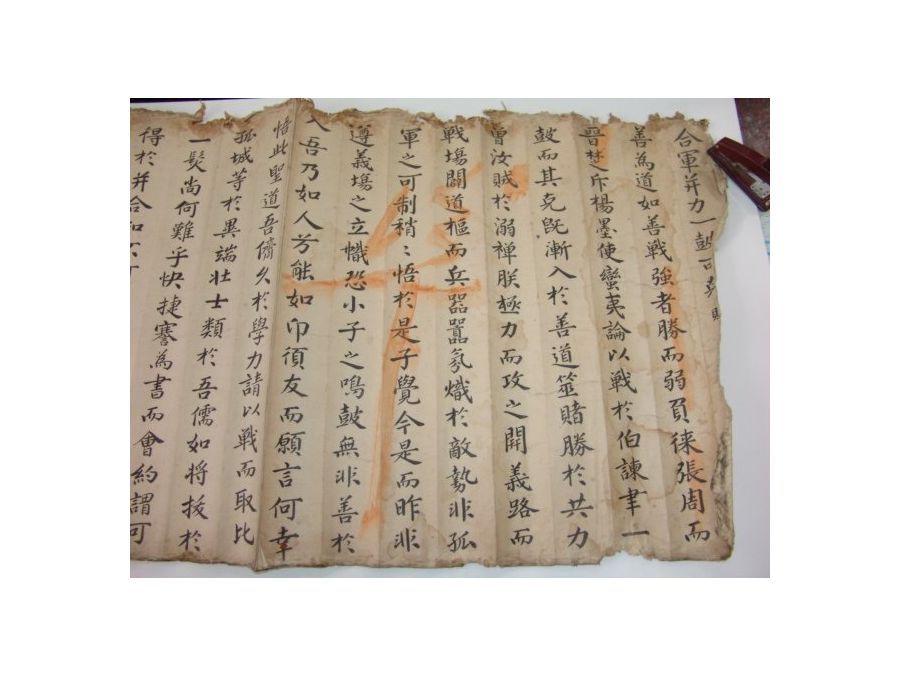 合軍并力一鼓可克
善為道如善戰強者勝而弱負徠張周而
晉楚斥楊墨使蠻夷論以戰於伯諫聿一
鼓而其克旣漸入於善道筮賭勝於共力
曾汝賊於溺禪朕極力而攻之開義路而
戰場闢道樞而兵器囂氛熾於敵勢非孤
軍之可制稍〻悟於是子覺今是而昨非
遵義場之立幟恐小子之鳴鼓無非善於
人吾乃如人芳能如卬須友而願言何幸
悟此聖道吾儕久於學力請以戰而取比
孤城等於異端壯士類於吾儒如将拔於
一髮尚何難乎快捷謇為書而會約謂可
得於并合